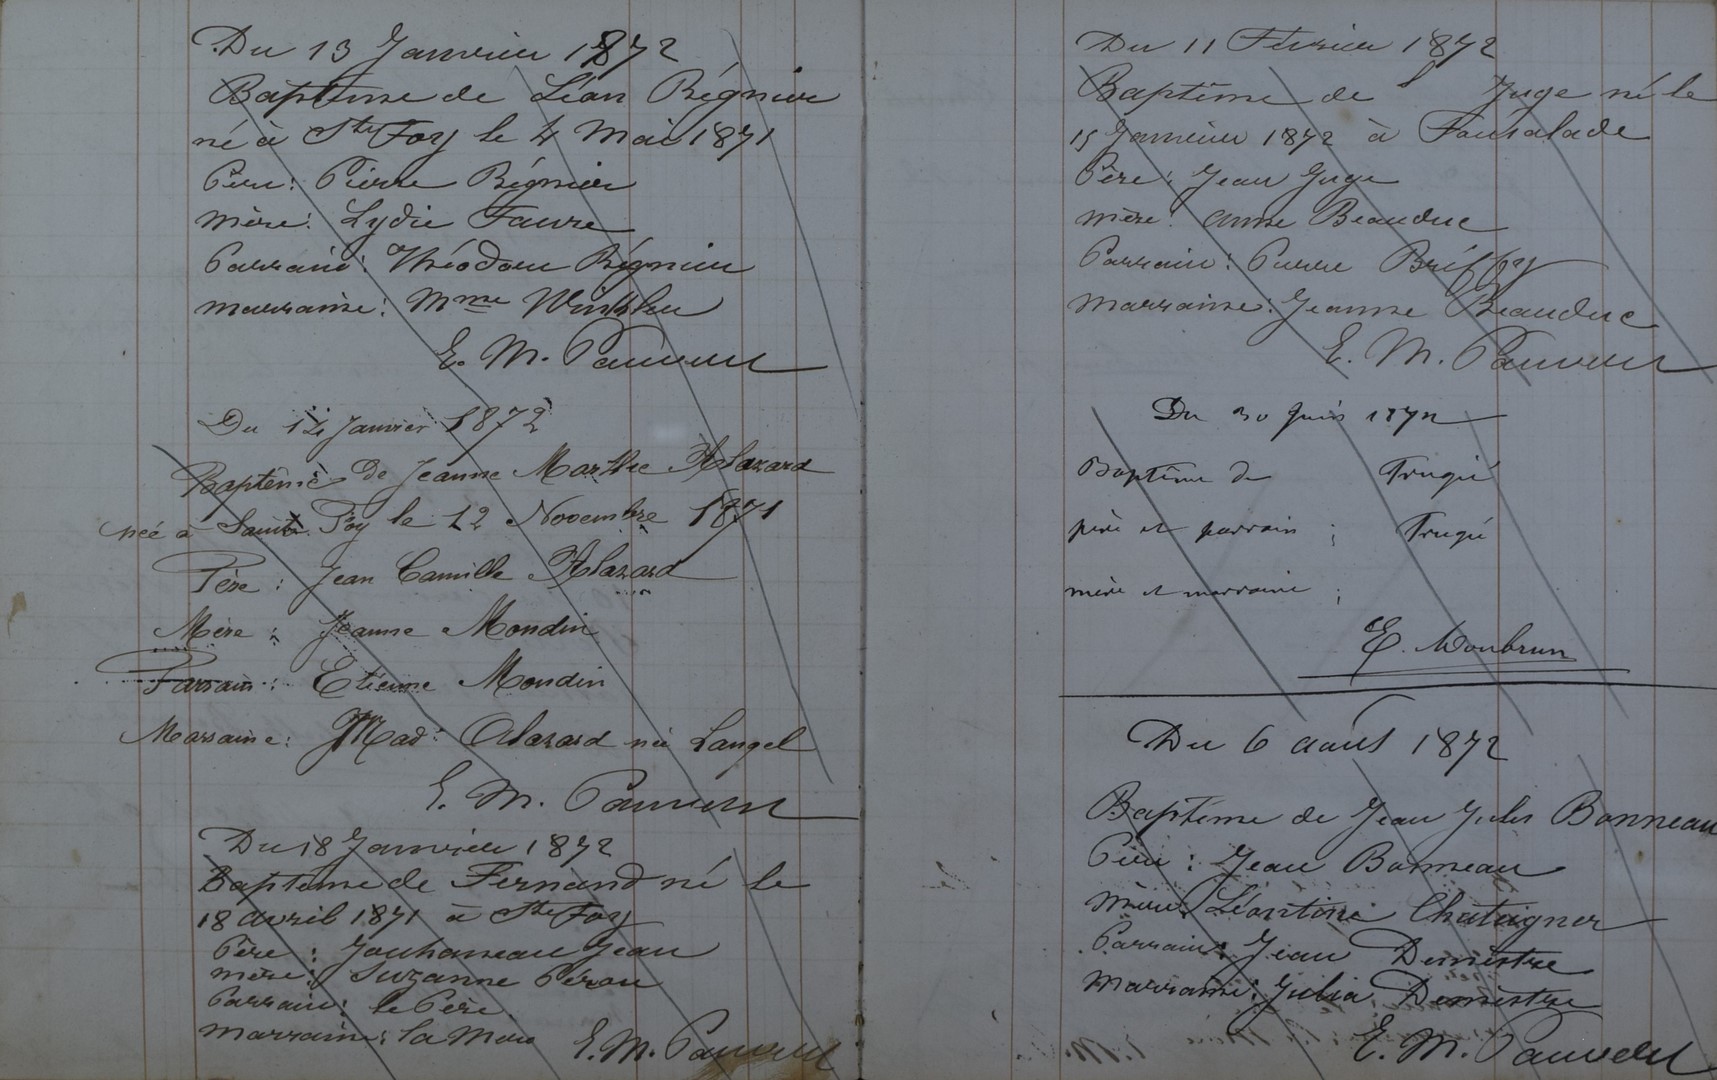 Du 13 Janvier 1872
Baptême de Léon Régnier
né à Ste Foy le 4 Mai 1871
Père: Pierre Régnier
mère: Lydie Faure
Parrain: Théodore Régnier
marraine: Mme Winkler
E. M. Pauvert
Du 14 Janvier 1872
Baptême de Jeanne Marthe Alazard
née à Sainte Foy le 12 Novembre 1871
Père: Jean Camille Alazard
Mère: Jeanne Mondin
Parrain: Etienne Mondin
Marraine: Mad: Alazard née Langel
E. M. Pauvert
Du 18 Janvier 1872
Baptême de Fernand né le
18 avril 1871 à Ste Foy
Père: Jouhaneau Jean
mère: Suzanne
Parrain: le Père.
marraine: la Mère
E. M. Pauvert
Du 11 Février 1872
Baptême de Juge né le
15 Janvier 1872 à Fonsalade
Père: Jean Juge
mère: Anne Beauduc
Parrain: Pierre
marraine: Jeanne Beauduc
E. M. Pauvert
Du 30 1872
Baptême de
père et parrain;
mère et marraine;
E. Monbrun
Du 6 août 1872
Baptême de Jean Jules Bonneau
Père: Jean Bonneau
mère: Léontine Chataigner
Parrain: Jean Demestre
Marraine: Julia Demestre
E. M. Pauvert